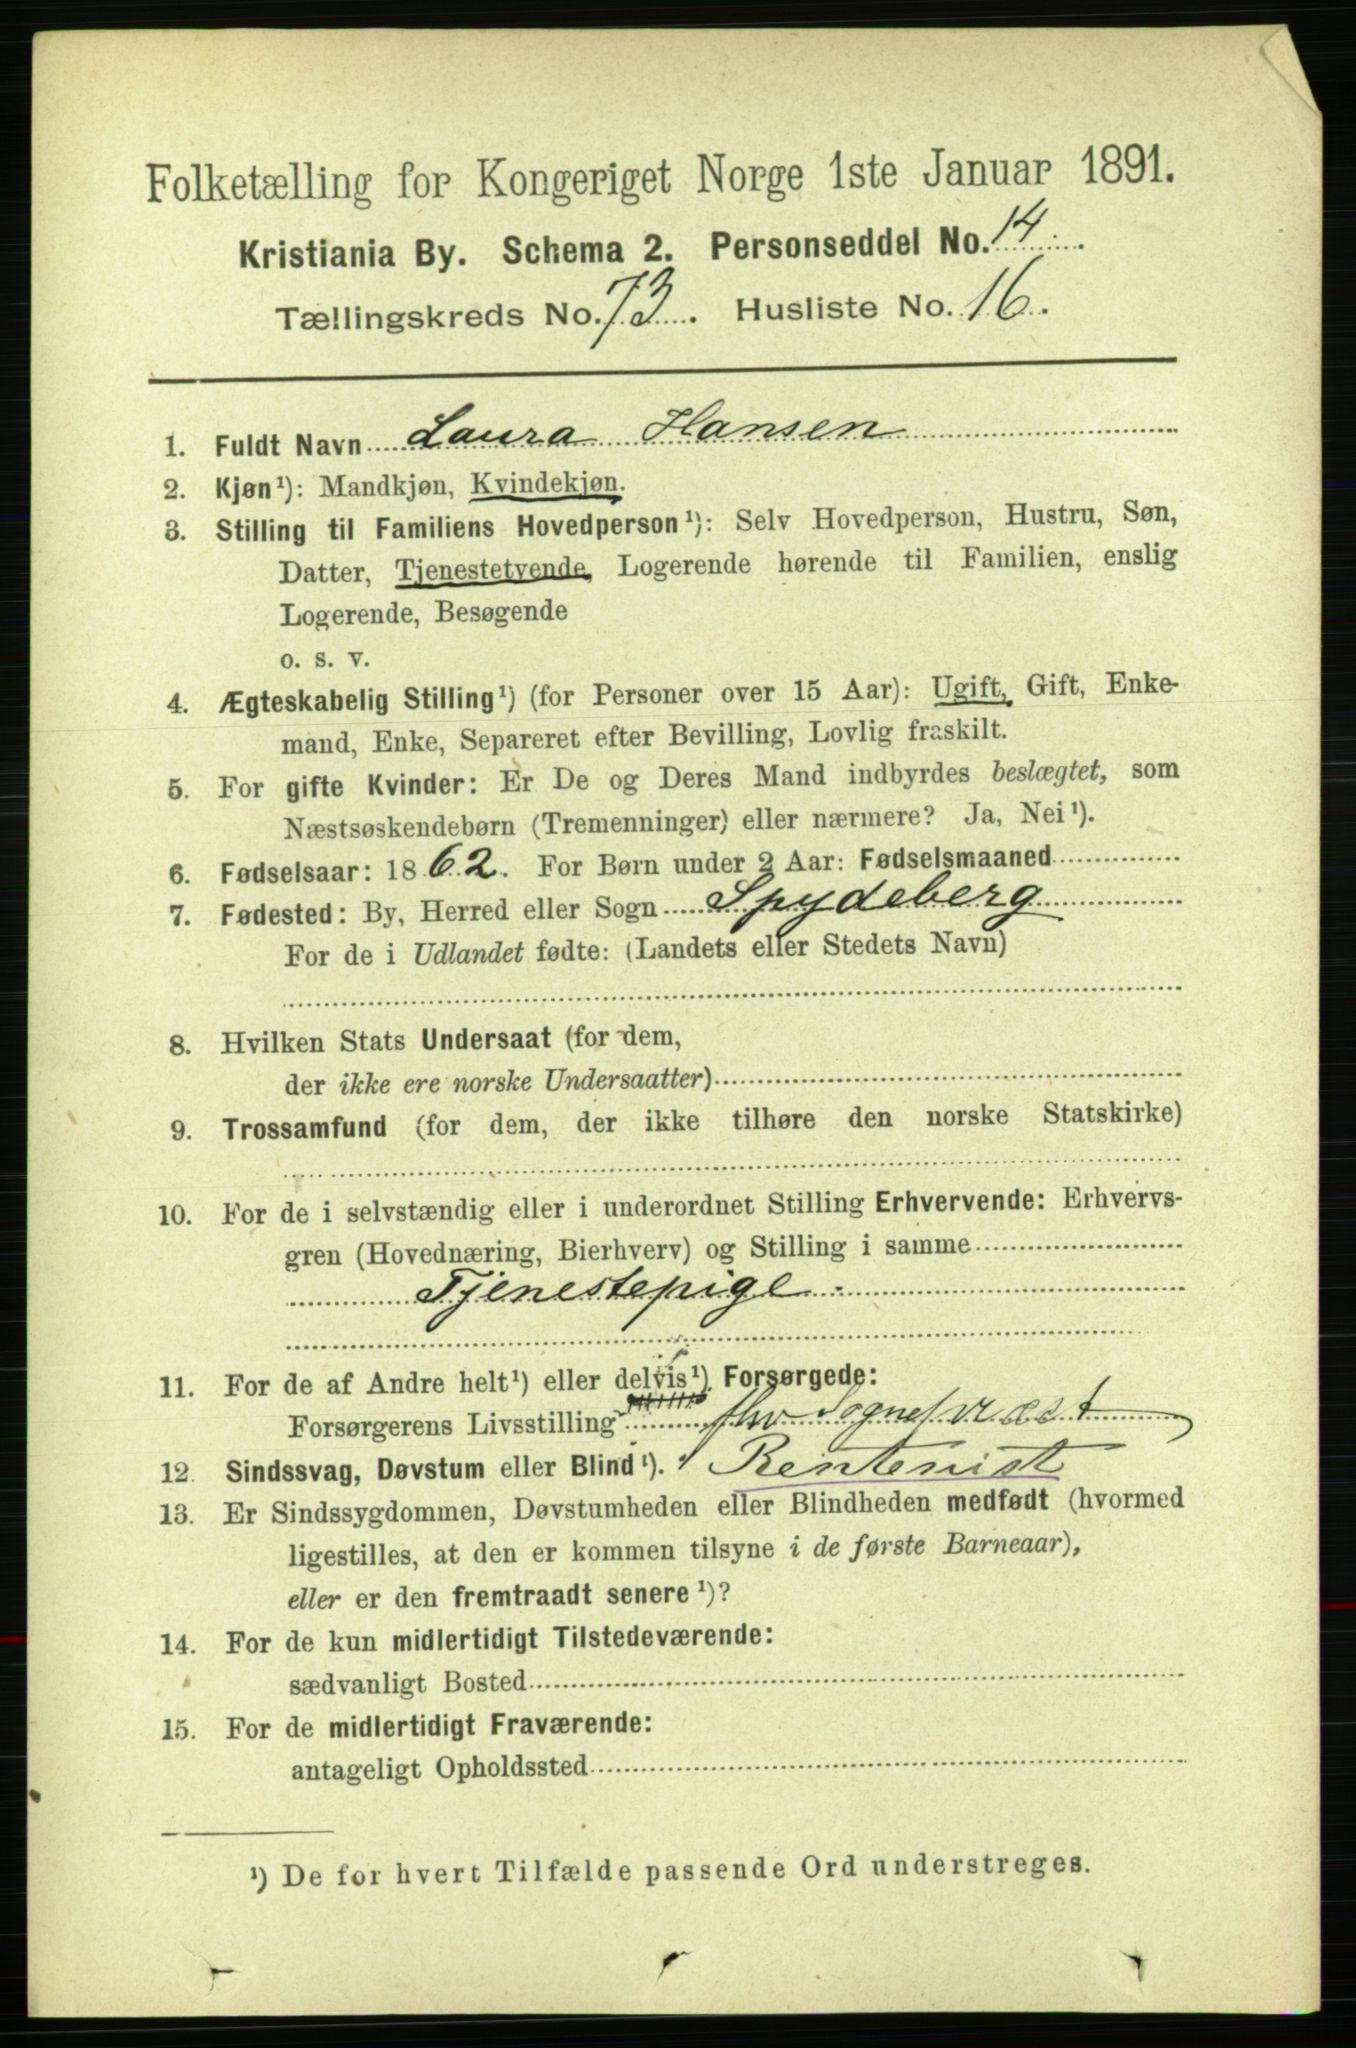 Folketælling for Kongeriget Norge 1ste Januar 1891.
Kristiania By. Schema 2. Personseddel No. 14.
Tællingskreds No. 73. Husliste No. 16.
1. Fuldt Navn Laura Hansen
2. Kjøn¹): Mandkjøn, Kvindekjøn.
3. Stilling til Familiens Hovedperson¹): Selv Hovedperson, Hustru, Søn,
Datter, Tjenestetyende, Logerende hørende til Familien, enslig
Logerende, Besøgende
o. s. v.
4. Ægteskabelig Stilling¹) (for Personer over 15 Aar): Ugift, Gift, Enke-
mand, Enke, Separeret efter Bevilling, Lovlig fraskilt.
5. For gifte Kvinder: Er De og Deres Mand indbyrdes beslægtet, som
Næstsøskendebørn (Tremenninger) eller nærmere? Ja, Nei¹).
6. Fødselsaar: 1862. For Børn under 2 Aar: Fødselsmaaned
7. Fødested: By, Herred eller Sogn Spydeberg
For de i Udlandet fødte: (Landets eller Stedets Navn)
8. Hvilken Stats Undersaat (for dem,
der ikke ere norske Undersaatter)
9. Trossamfund (for dem, der ikke tilhøre den norske Statskirke)
10. For de i selvstændig eller i underordnet Stilling Erhvervende: Erhvervs-
gren (Hovednæring, Bierhverv) og Stilling i samme
Tjenestepige
11. For de af Andre helt¹) eller delvis¹) Forsørgede:
Forsørgerens Livsstilling fhv Sognepræst
12. Sindssvag, Døvstum eller Blind¹). Rentenist
13. Er Sindssygdommen, Døvstumheden eller Blindheden medfødt (hvormed
ligestilles, at den er kommen tilsyne i de første Barneaar),
eller er den fremtraadt senere¹)?
14. For de kun midlertidigt Tilstedeværende:
sædvanligt Bosted
15. For de midlertidigt Fraværende:
antageligt Opholdssted
¹) De for hvert Tilfælde passende Ord understreges.